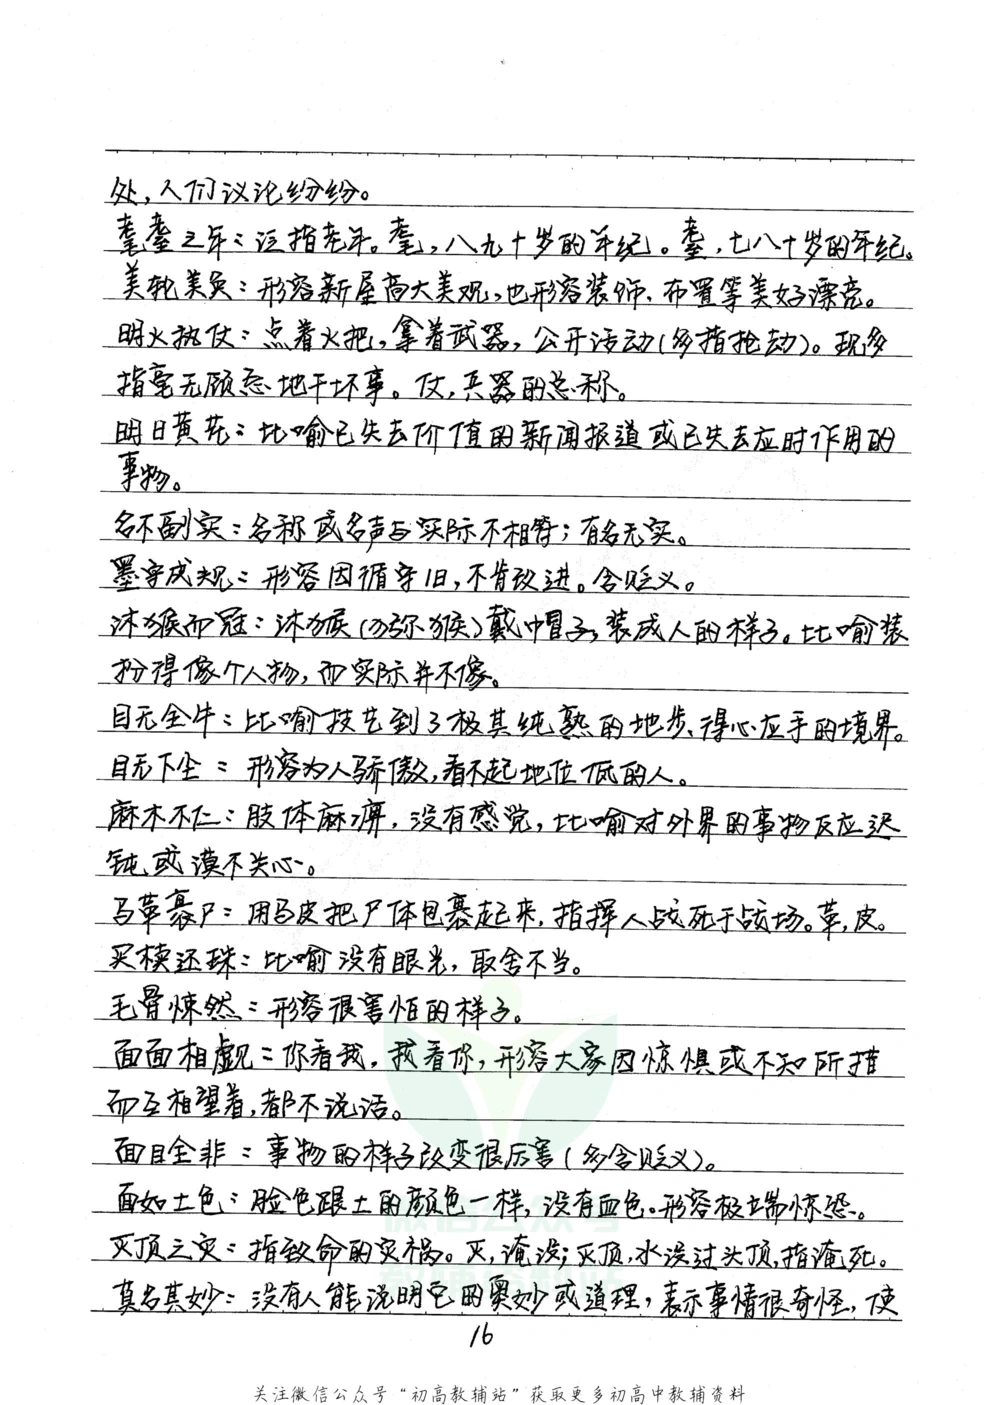 处,人们议论纷纷。
耄耋之年:泛指老年。耄,八九十岁的年纪。耋,七八十岁的年纪。
美轮美奂:形容新屋高大美观,也形容装饰、布置等美好漂亮。
明火执仗:点着火把,拿着武器,公开活动(多指抢劫)。现多
指毫无顾忌地干坏事。仗,兵器的总称。
明日黄花:比喻已失去价值的新闻报道或已失去应时作用的
事物。
名不副实:名称或名声与实际不相符;有名无实。
墨守成规:形容因循守旧,不肯改进。含贬义。
沐猴而冠:沐猴(猕猴)戴帽子,装成人的样子。比喻装
扮得像个人物,而实际并不像。
目无全牛:比喻技艺到了极其纯熟的地步、得心应手的境界。
目无下尘:形容为人骄傲,看不起地位低的人。
麻木不仁:肢体麻痹,没有感觉,比喻对外界的事物反应迟
钝或漠不关心。
马革裹尸:用马皮把尸体包裹起来,指挥人战死于战场。革,皮。
买椟还珠:比喻没有眼光,取舍不当。
毛骨悚然:形容很害怕的样子。
面面相觑:你看我,我看你,形容大家因惊惧或不知所措
而互相望着,都不说话。
面目全非:事物的样子改变很厉害(多含贬义)。
面如土色:脸色跟土的颜色一样,没有血色。形容极端惊恐。
灭顶之灾:指致命的灾祸。灭,淹没;灭顶,水没过头顶,指淹死。
莫名其妙:没有人能说明它的奥妙或道理,表示事情很奇怪,使
16
微信公众号
教辅资料站
关注微信公众号“初高教辅站”获取更多初高中教辅资料